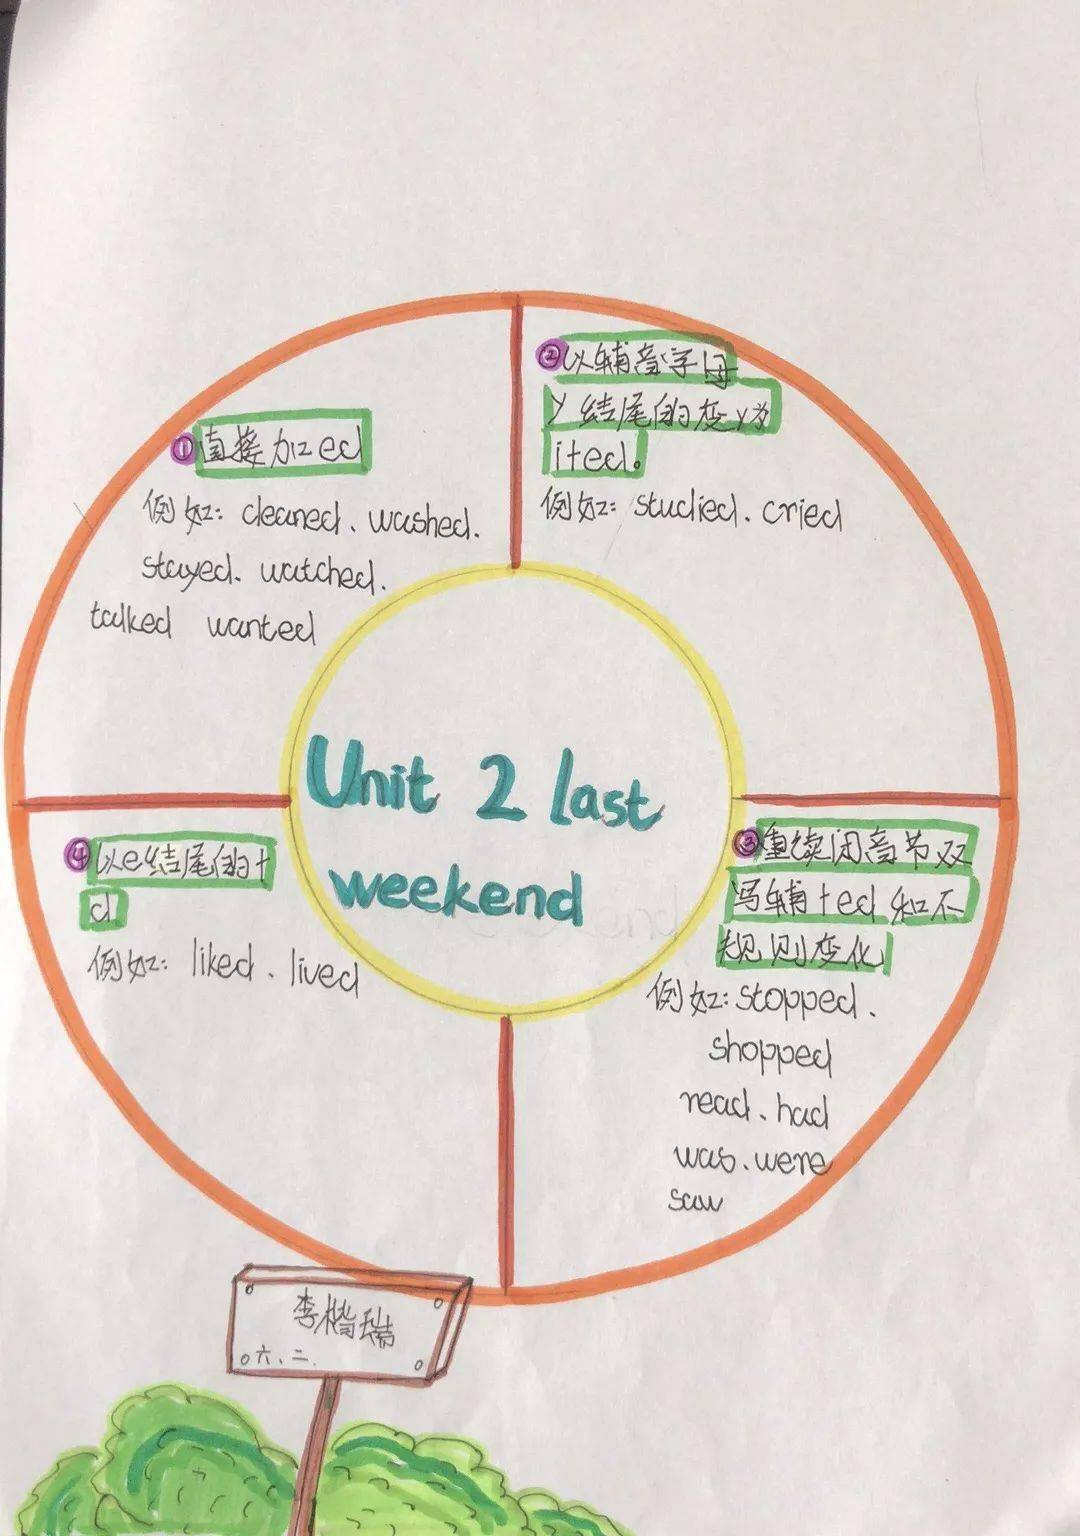 ①直接加ed
例如: cleaned. washed.
stayed. watched.
talked wanted
②以辅音字母
y结尾的变y为
i+ed。
例如: studied. cried
Unit 2 last
weekend
③重续闭音节双
写辅+ed和不
规则变化
例如: stopped.
shopped
read. had
was. were
saw
④以e结尾的+
d
例如: liked. lived
李楷瑞
六、二.